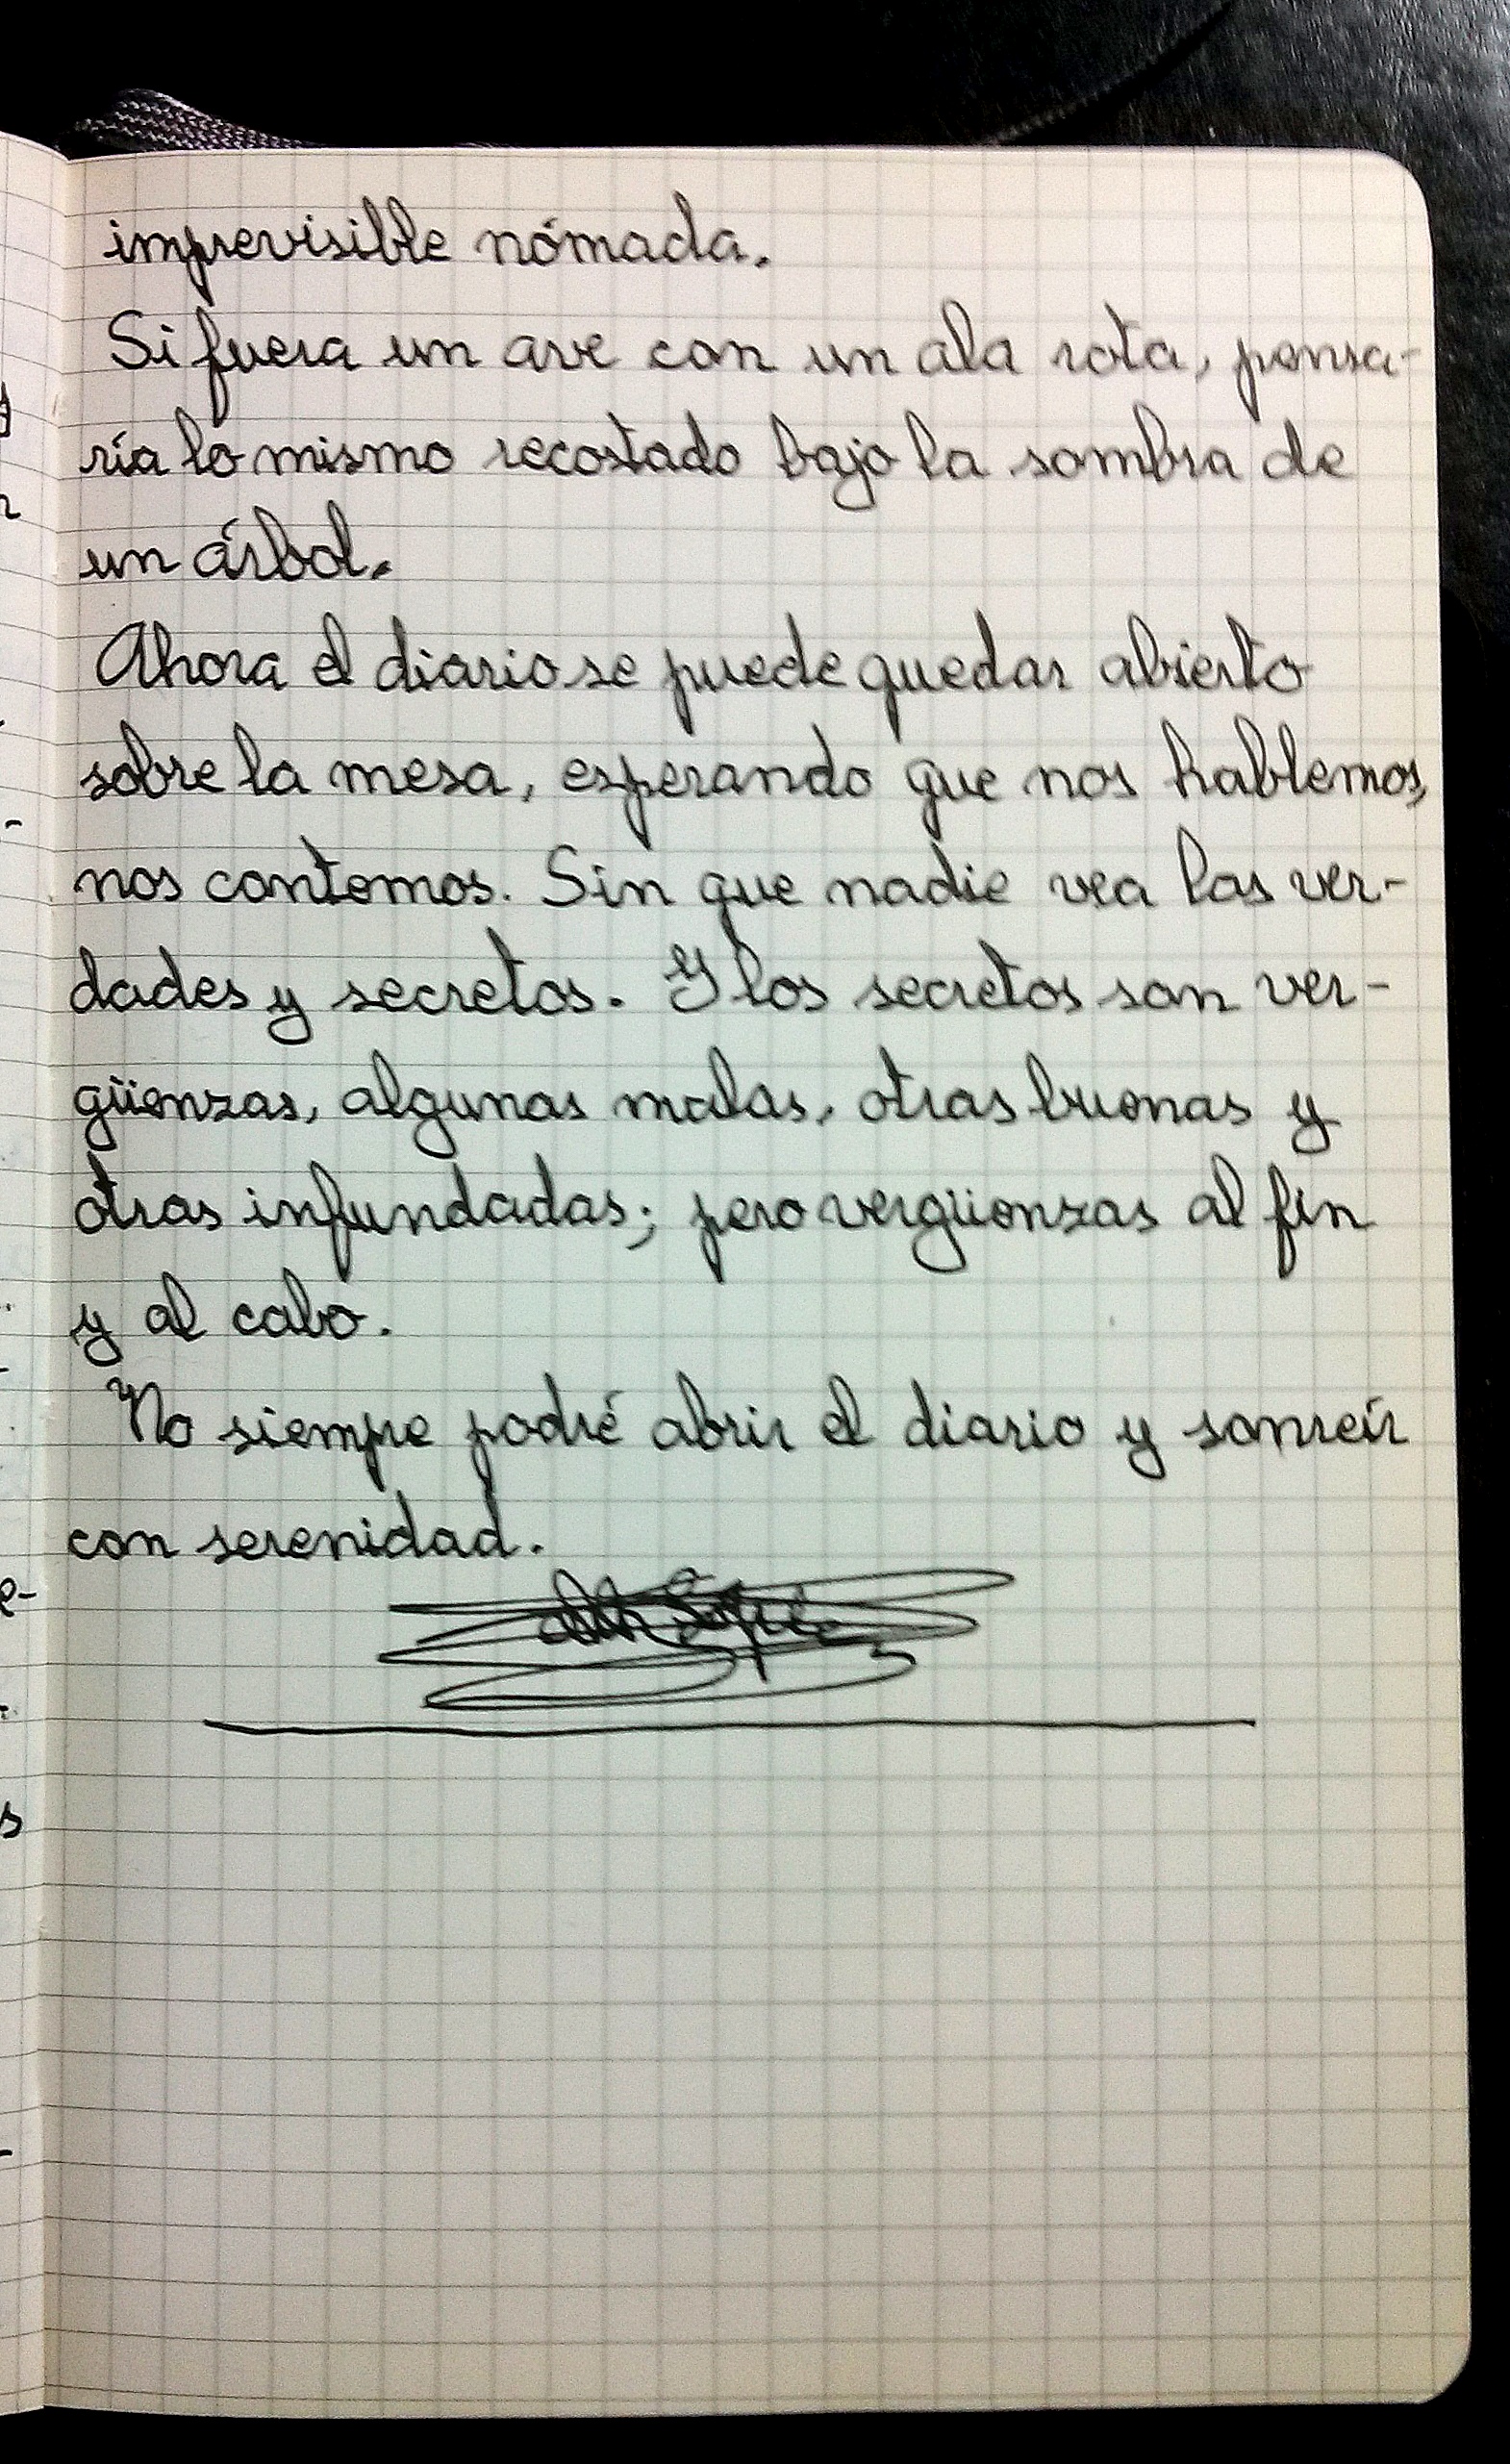 imprevisible nómada.
Si fuera un ave con un ala rota, pensa-
ría lo mismo recostado bajo la sombra de
un árbol.
Ahora el diario se puede quedar abierto
sobre la mesa, esperando que nos hablemos,
nos contemos. Sin que nadie vea las ver-
dades y secretos. Y los secretos son ver-
güenzas, algunas malas, otras buenas y
otras infundadas; pero vergüenzas al fin
y al cabo.
No siempre podré abrir el diario y sonreír
con serenidad.